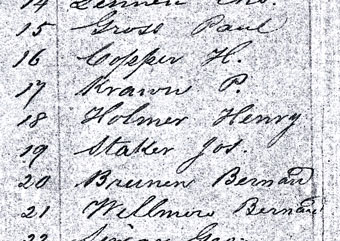 15 Gross Paul
16 Copper H.
17 Krawn P.
18 Holmer Henry
19 Staker Jos.
20 Brunen Bernard
21 Wellmer Bernard
22